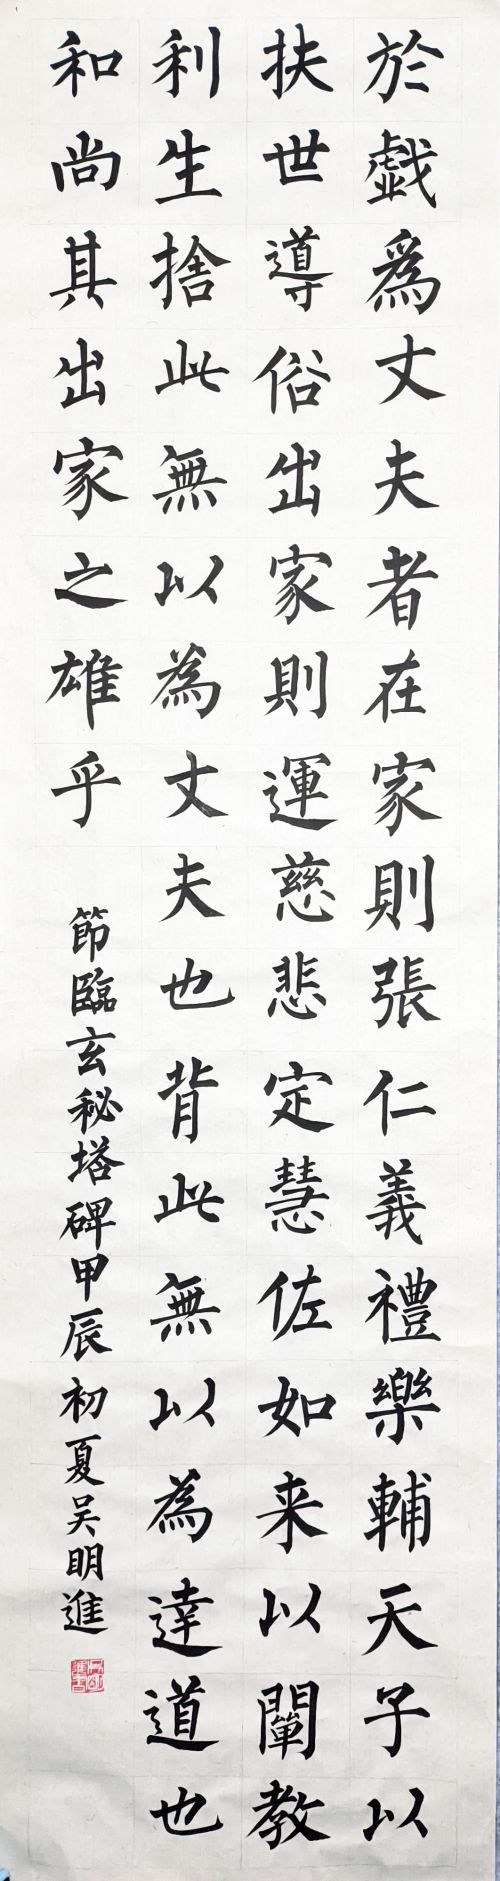 於戯為丈夫者在家則張仁義禮樂輔天子以
扶世導俗出家則運慈悲定慧佐如来以闡教
利生捨此無以為丈夫也背此無以為達道也
和尚其出家之雄乎
節臨玄秘塔碑甲辰初夏吴明進